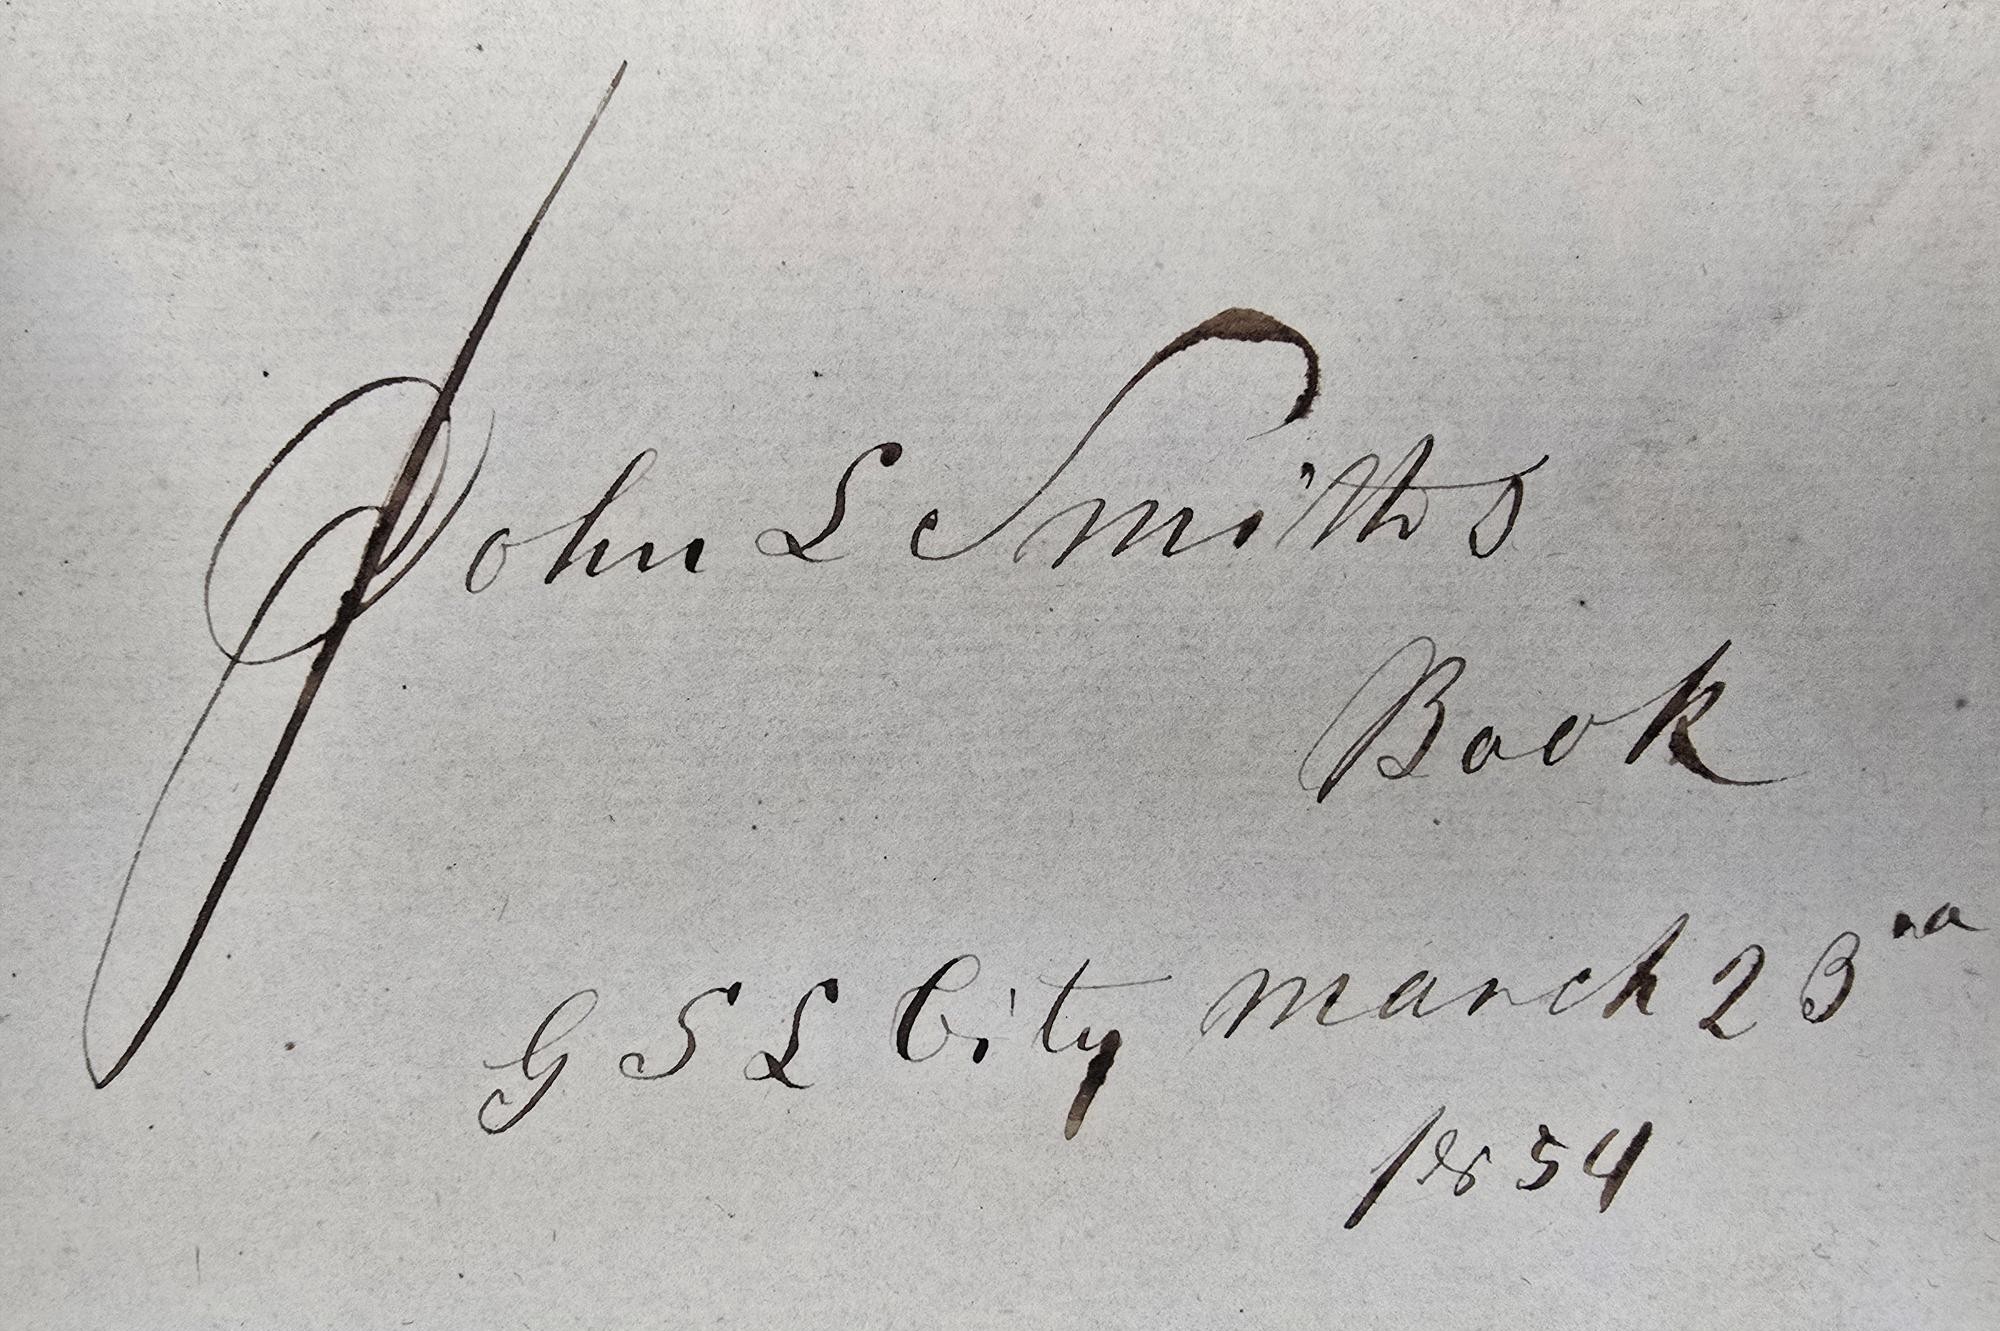 John L Smiths
Book
G S L City march 23rd
1854